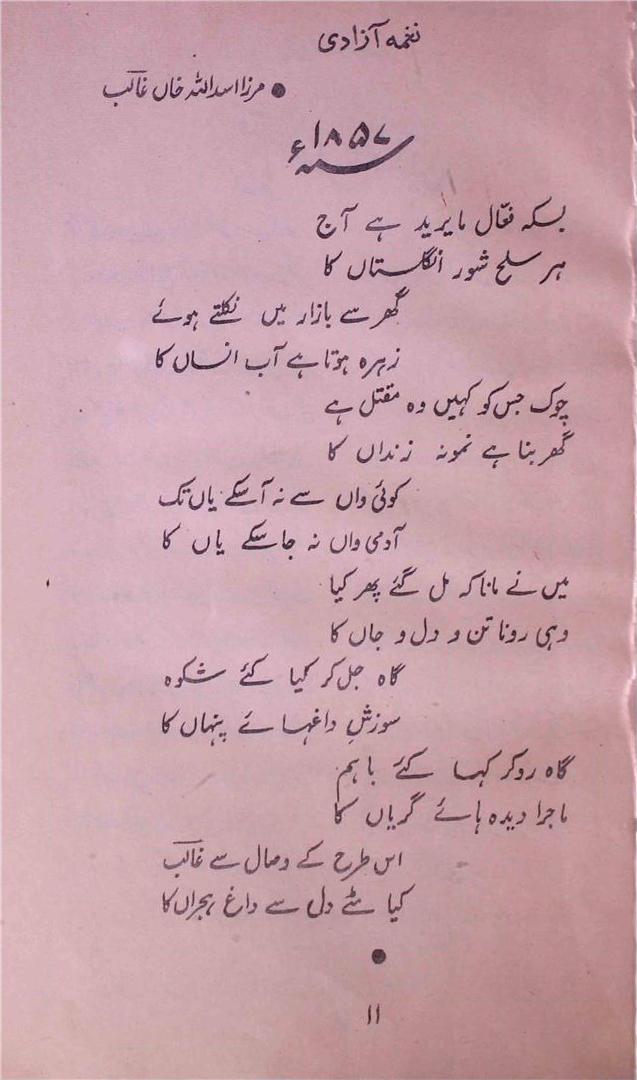 نغمہ آزادی
● مرزا اسد اللہ خاں غالب
سنہ ۱۸۵۷ء
بسکہ فعّال مایرید ہے آج
ہر سلح شور انگلستاں کا
گھر سے بازار میں نکلتے ہوئے
زہرہ ہوتا ہے آب انساں کا
چوک جس کو کہیں وہ مقتل ہے
گھر بنا ہے نمونہ زنداں کا
کوئی واں سے نہ آسکے یاں تک
آدمی واں نہ جاسکے یاں کا
میں نے مانا کہ مل گئے پھر کیا
وہی رونا تن و دل و جاں کا
گاہ جل کر کیا کئے شکوہ
سوزشِ داغہائے پنہاں کا
گاہ رو کر کہا کئے باہم
ماجرا دیدہ ہائے گریاں کا
اس طرح کے وصال سے غالب
کیا مٹے دل سے داغ ہجراں کا
●
۱۱